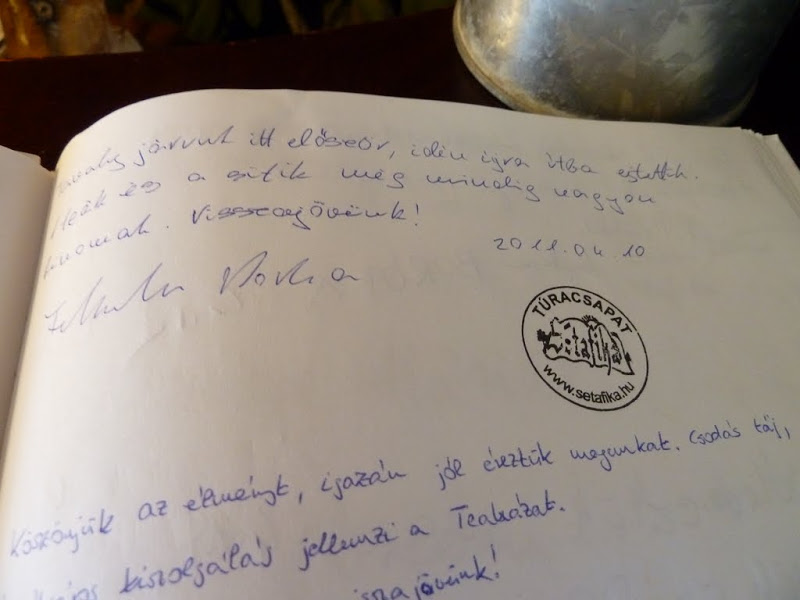 járunk itt először, idén újra útba ejtettük.
Teák és a sütik még mindig nagyon
finomak. Visszajövünk!
2011.04.10
TÚRACSAPAT
Sétafika
www.setafika.hu
Köszönjük az élményt, igazán jól éreztük magunkat. Csodás táj,
kiszolgálás jellemzi a Teaházat.